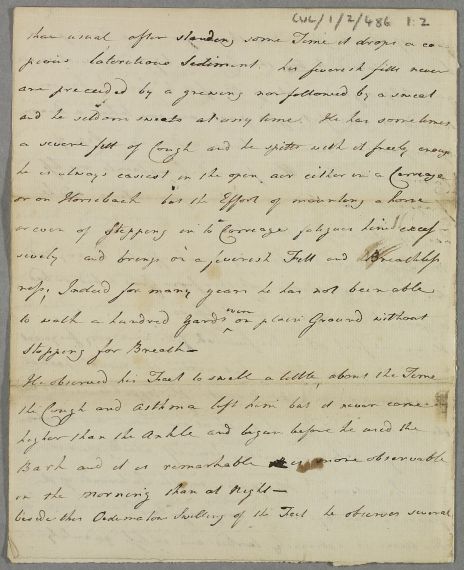 CUL/1/2/486 1:2
than usual after standing some Time it drops a co
pious lateritious Sediment. his feverish fitts never
are preceeded by a grewing nor followed by a sweat
and he seldom sweats at any time. He has sometimes
a severe fitt of Cough and he spitts with it freely enough
he is always easiest in the open air either in a Carreage
or on Horseback but the Effort of mounting a horse
or even of Stepping in to Carreage fatigues him exces
sively and brings on a feverish Fitt and Breathless
ness, Indeed for many years he has not been able
to walk a hundred yards even on plain Ground without
Stopping for Breath—
He observed his Feet to swell a little, about the Time
the Cough and Asthma left him but it never came
higher than the Ankle and began before he used the
Bark and it is remarkable is more observable
in the morning than at Night—
beside this Oedematous Swelling of the Feet he observes several